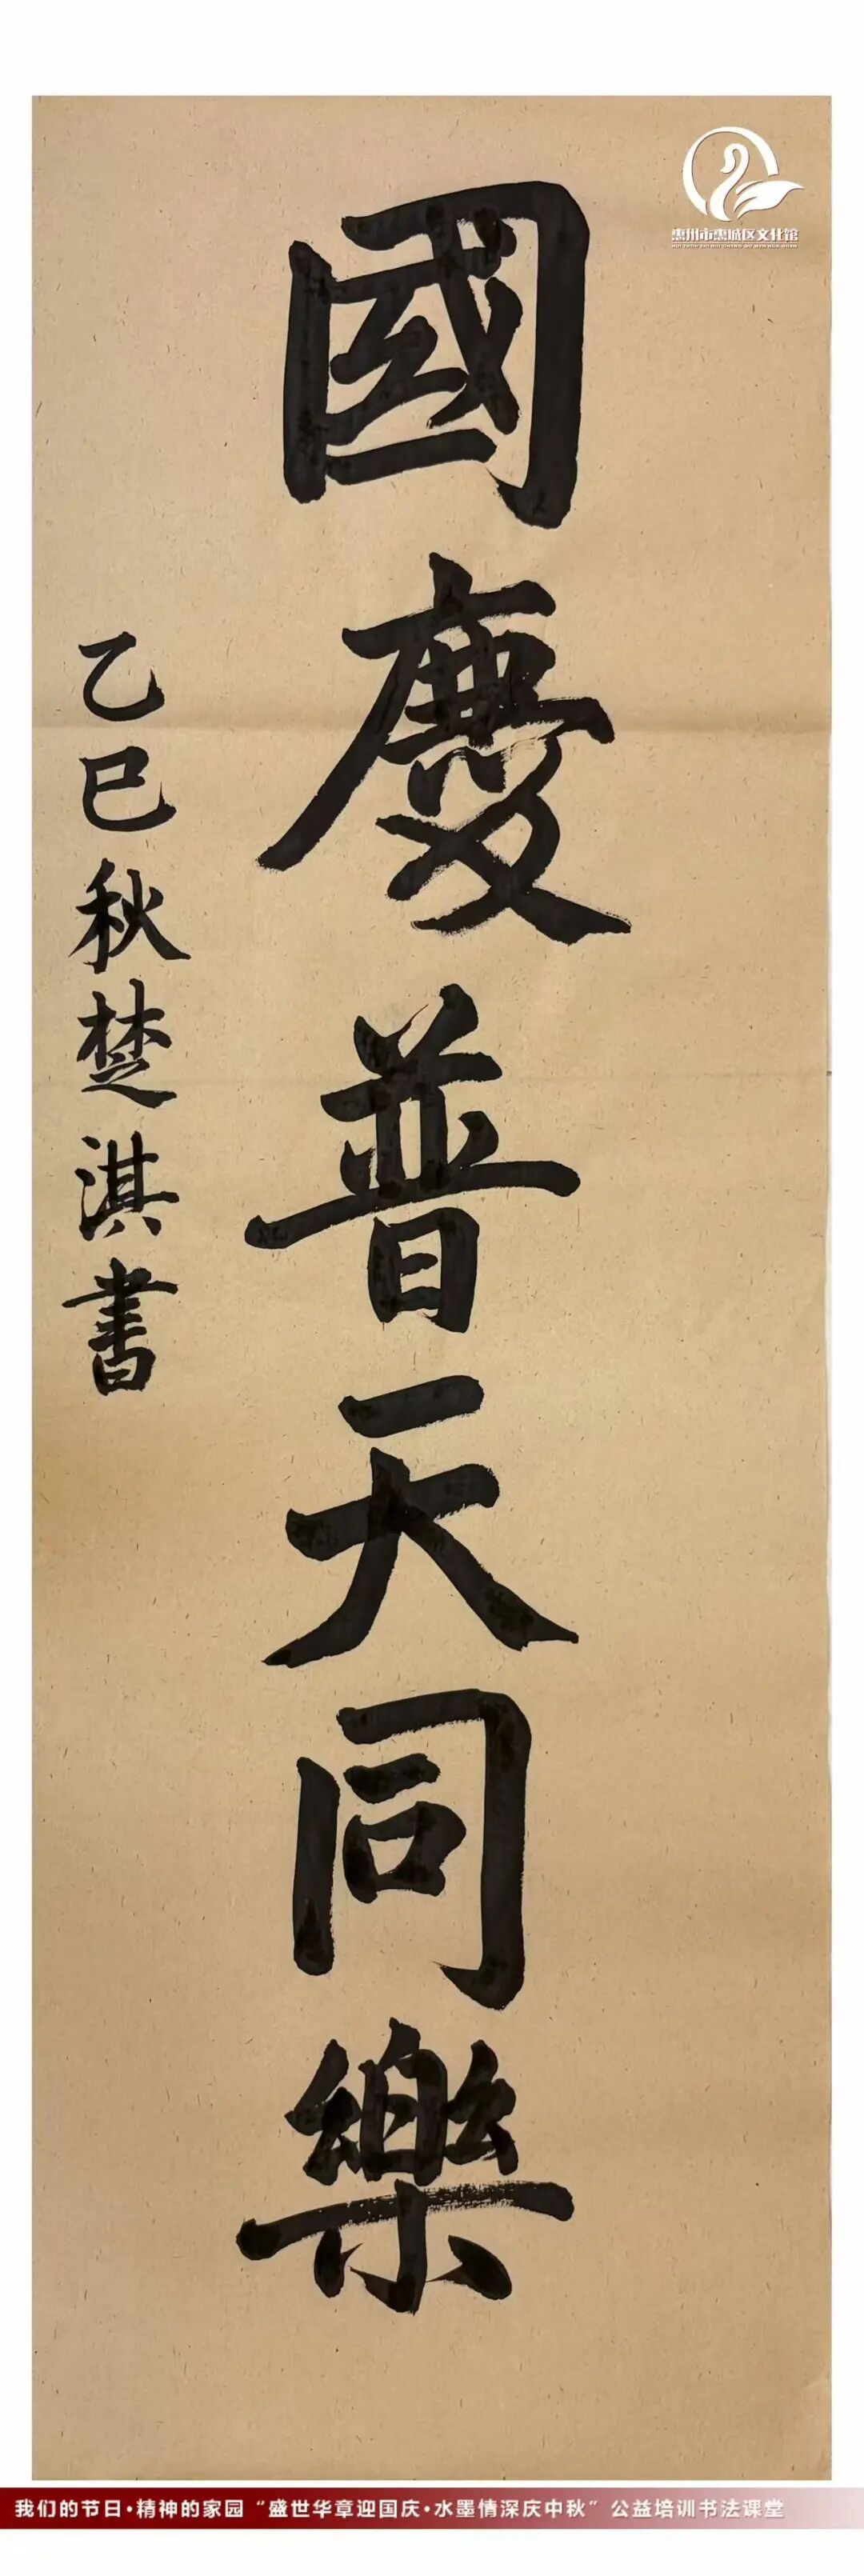 惠州市惠城区文化馆
HUI ZHOU SHI HUI CHENG QU WEN HUA GUAN
國慶普天同樂
乙巳秋楚淇書
我们的节日·精神的家园“盛世华章迎国庆·水墨情深庆中秋”公益培训书法课堂